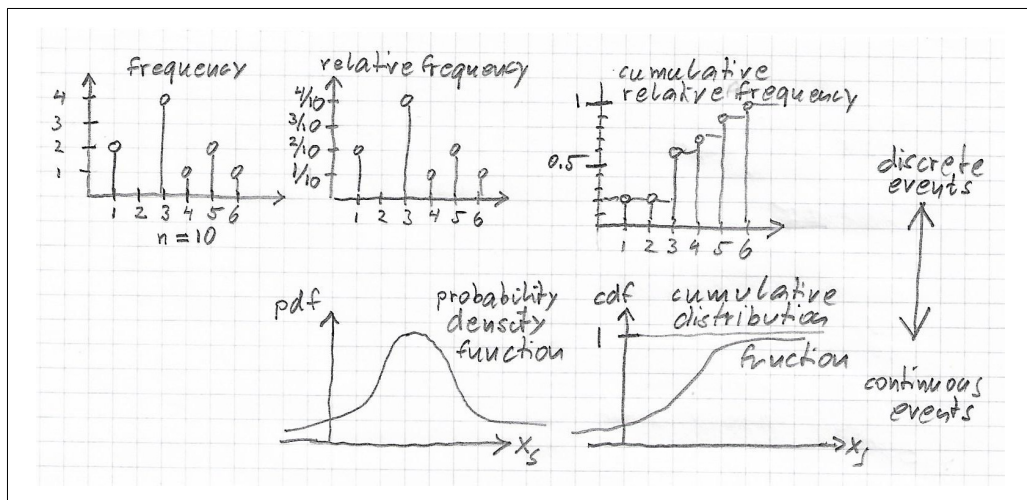 frequency
4
3
2
1
1 2 3 4 5 6
n = 10
relative frequency
4/10
3/10
2/10
1/10
1 2 3 4 5 6
cumulative
relative frequency
1
0.5
1 2 3 4 5 6
discrete
events
pdf
probability
density
function
xs
cdf
cumulative
distribution
function
1
xs
continuous
events